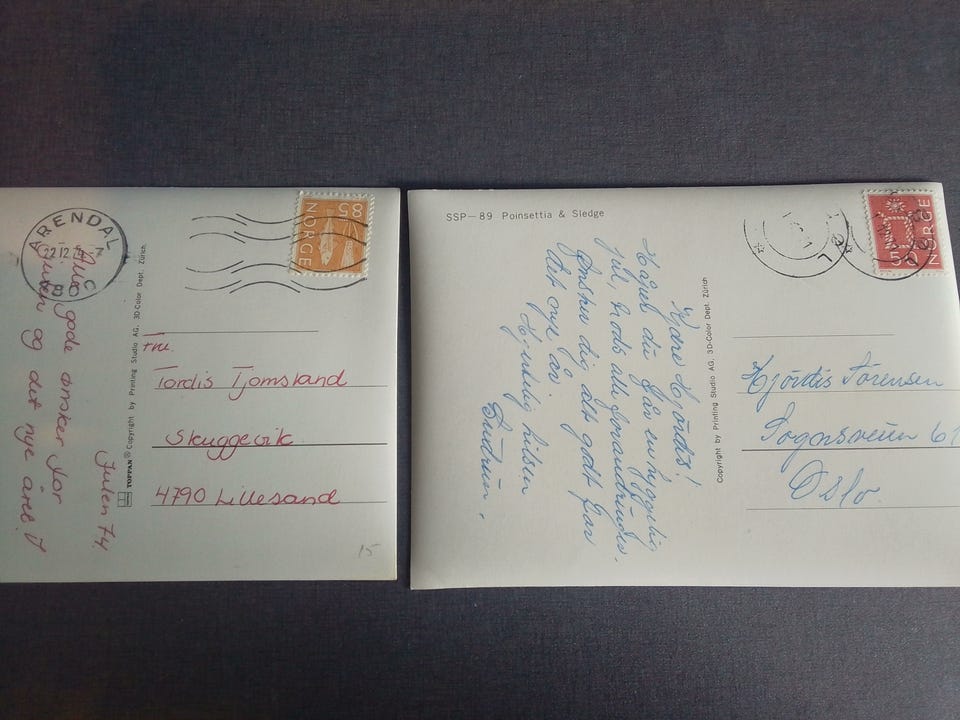 ARENDAL
22.12.74
85
NORGE
Julen 74.
Alle gode ønsker for
Julen og det nye året.
TOPPAN® Copyright by Printing Studio AG. 3D-Color Dept. Zürich
Fru.
Tordis Tjomsland
Skuggevik
4790 Lillesand
15
SSP—89 Poinsettia & Sledge
NORGE
Kjære Hjördis!
Håper du får en hyggelig
jul, trods alle forandringer.
Ønsker dig alt godt for
det nye år.
Hjertelig hilsen
Copyright by Printing Studio AG. 3D-Color Dept. Zürich
Hjördis Sörensen
Sognsveien 61
Oslo